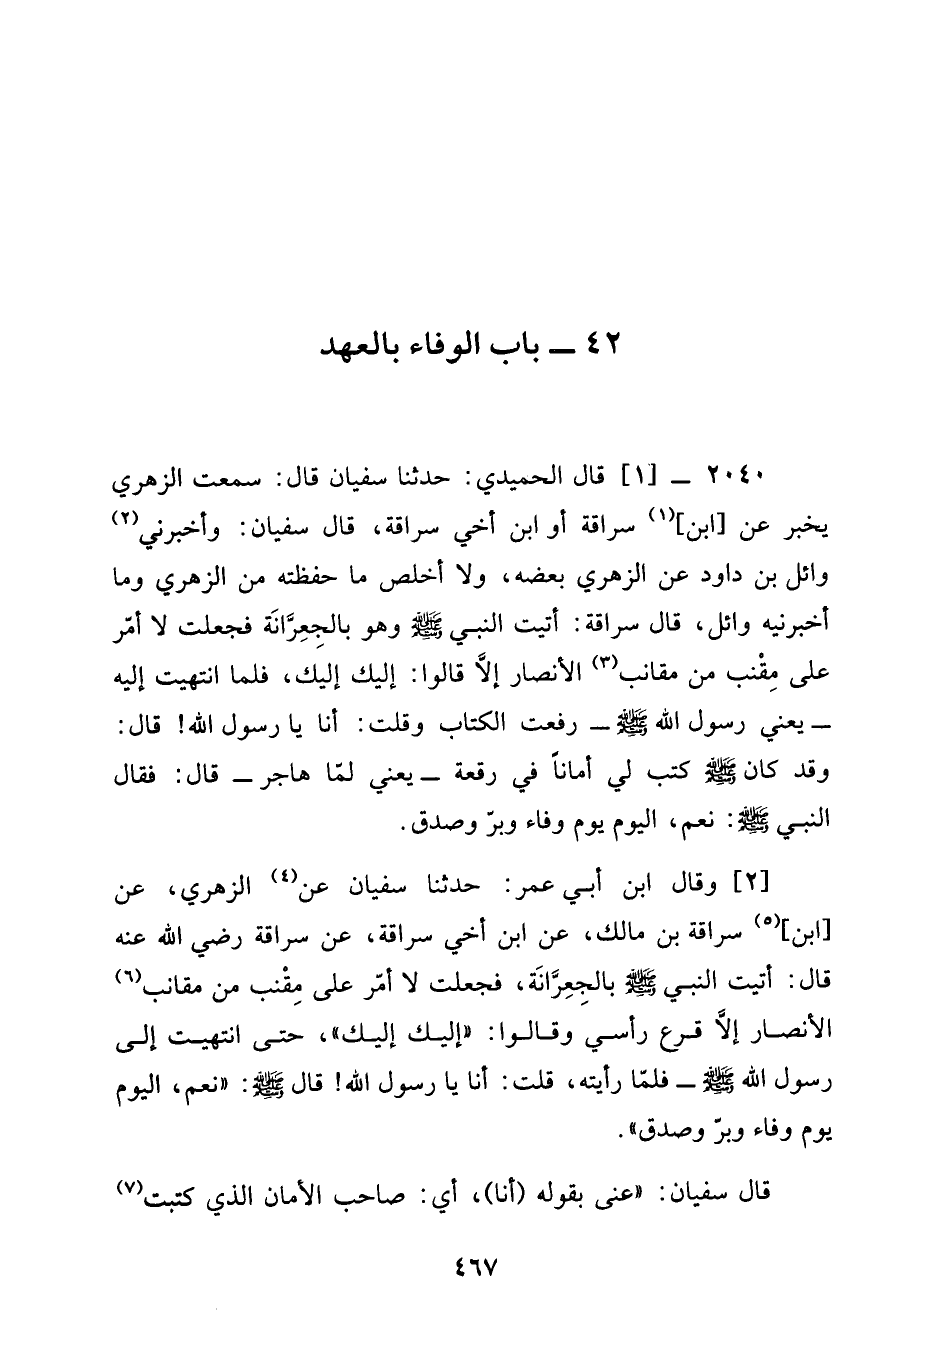 ٤٢ ـ باب الوفاء بالعهد
٢٠٤٠ ـ [١] قال الحميدي: حدثنا سفيان قال: سمعت الزهري
يخبر عن [ابن](١) سراقة أو ابن أخي سراقة، قال سفيان: وأخبرني(٢)
وائل بن داود عن الزهري بعضه، ولا أخلص ما حفظته من الزهري وما
أخبرنيه وائل، قال سراقة: أتيت النبي ﷺ وهو بالجِعِرَّانَة فجعلت لا أمّر
على مِقْنب من مقانب(٣) الأنصار إلاَّ قالوا: إليك إليك، فلما انتهيت إليه
ـ يعني رسول الله ﷺ ـ رفعت الكتاب وقلت: أنا يا رسول الله! قال:
وقد كان ﷺ كتب لي أماناً في رقعة ـ يعني لمّا هاجر ـ قال: فقال
النبي ﷺ: نعم، اليوم يوم وفاء وبرّ وصدق.
[٢] وقال ابن أبي عمر: حدثنا سفيان عن(٤) الزهري، عن
[ابن](٥) سراقة بن مالك، عن ابن أخي سراقة، عن سراقة رضي الله عنه
قال: أتيت النبي ﷺ بالجِعِرَّانَة، فجعلت لا أمّر على مِقْنب من مقانب(٦)
الأنصار إلاَّ قرع رأسي وقالوا: «إليك إليك»، حتى انتهيت إلى
رسول الله ﷺ ـ فلمّا رأيته، قلت: أنا يا رسول الله! قال ﷺ: «نعم، اليوم
يوم وفاء وبرّ وصدق».
قال سفيان: «عنى بقوله (أنا)، أي: صاحب الأمان الذي كتبت(٧)
٤٦٧